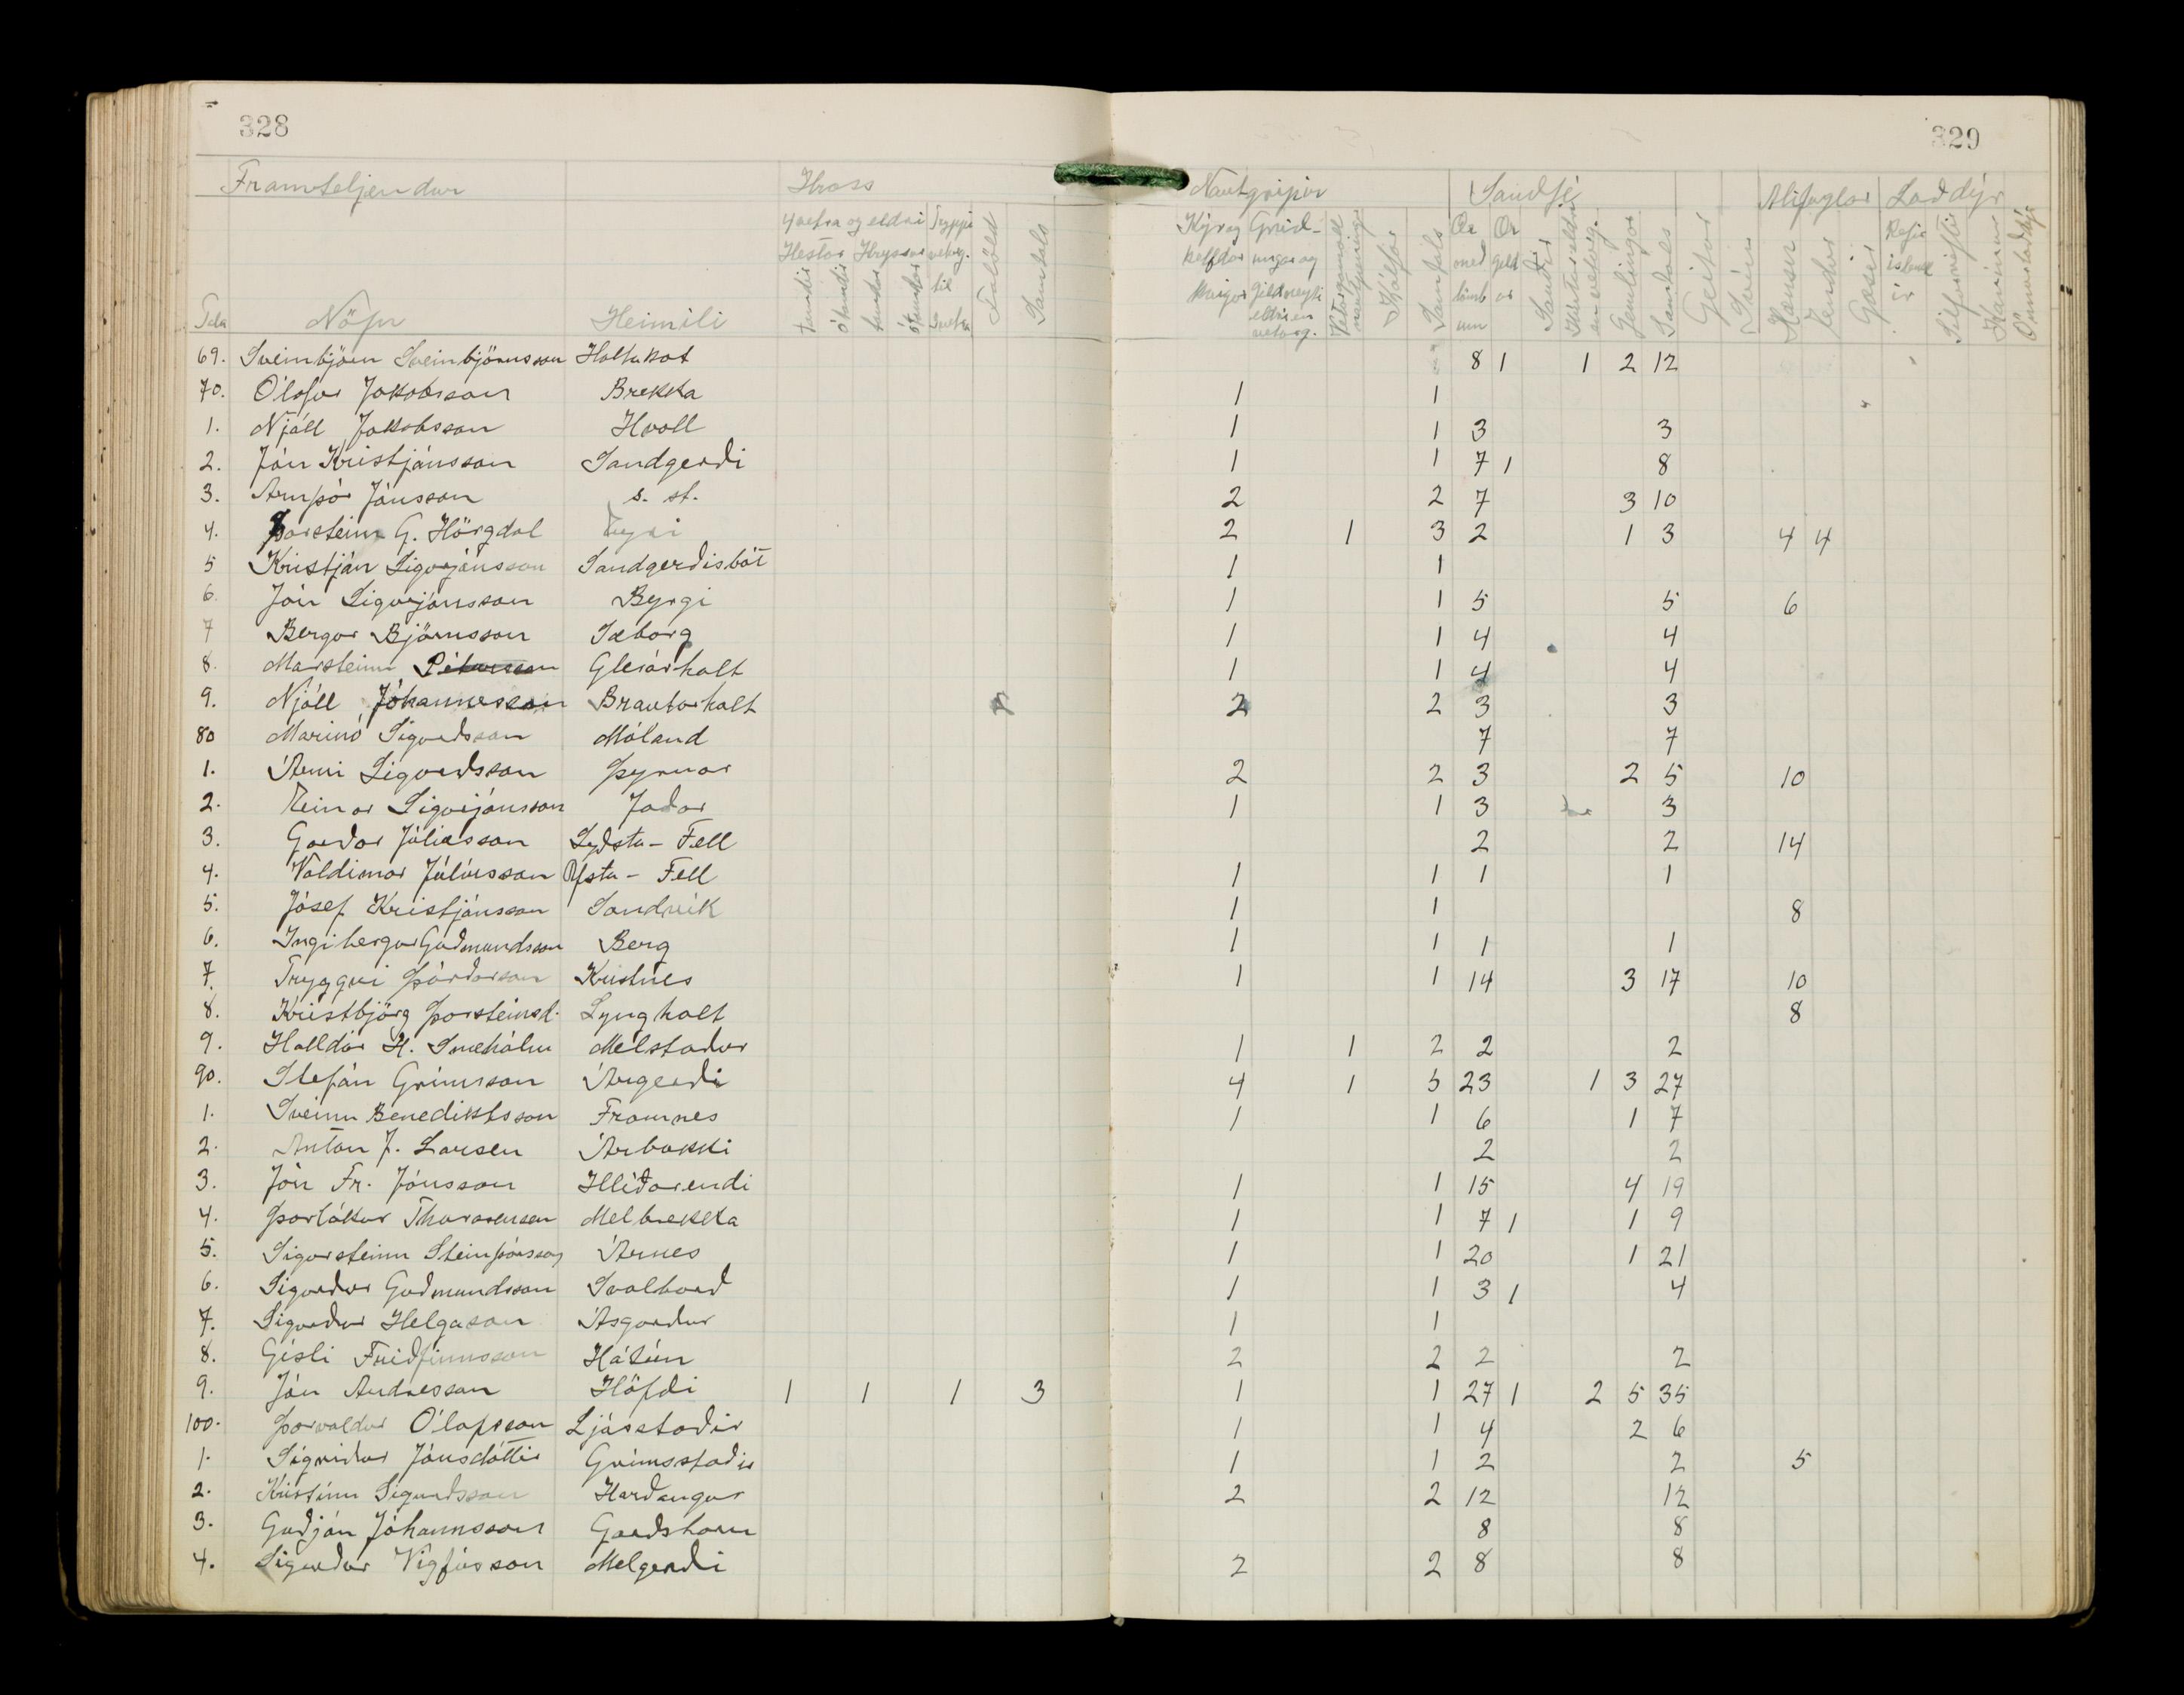 328
329
Framteljendur Hross Nautgripir Sauðfé Alifuglar Loðdýr
4 vetra og eldri Tryppi Kýr og Grið- Ær Ær Refir
Hestar Hryssur veturg. kelfdar ungar og með geld íslensk
til kvígur Geldneyti lömb ar ir
3 vetra eldri en um
veturg.
tamdir ótamdir tamdar ótamdar Folöld Samtals Kálfar Samtals Sauðir Gemlingar Samtals Geitur Svín Hænsn Endur Gæsir Silfurrefir Kanínur Önnur loðdýr
Tala Nöfn Heimili
69. Sveinbjörn Sveinbjörnsson Holtakot 8 1 1 2 12
70. Ólafur Jakobsson Brekka 1 1
1. Njáll Jakobsson Hvoll 1 1 3 3
2. Jón Kristjánsson Sandgerði 1 1 7 1 8
3. Arnþór Jónsson s. st. 2 2 7 3 10
4. Þorsteinn G. Hörgdal Eyri 2 1 3 2 1 3 4 4
5 Kristján Sigurjónsson Sandgerðisbót 1 1
6. Jón Sigurjónsson Byrgi 1 1 5 5 6
7 Bergur Björnsson Sæborg 1 1 4 4
8. Marsteinn Glerárholt 1 1 4 4
9. Njáll Jóhannesson Brautarholt 2 2 3 3
80 Marinó Sigurðsson Móland 7 7
1. Árni Sigurðsson Þyrnar 2 2 3 2 5 10
2. Einar Sigurjónsson Jaðar 1 1 3 3
3. Garðar Júlíusson Syðsta - Fell 2 2 14
4. Valdimar Júlíusson Ysta - Fell 1 1 1 1
5. Jósef Kristjánsson Sandvík 1 1 8
6. Ingibergur Guðmundsson Berg 1 1 1 1
7. Tryggvi Þórðarson Kristnes 1 1 14 3 17 10
8. Kristbjörg Þorsteinsd. Lyngholt 8
9. Halldór H. Snæhólm Melstaður 1 1 2 2 2
90. Stefán Grímsson Árgerði 4 1 5 23 1 3 27
1. Sveinn Benediktsson Framnes 1 1 6 1 7
2. Anton J. Larsen Árbakki 2 2
3. Jón Fr. Jónsson Hlíðarendi 1 1 15 4 19
4. Þorlákur Thorarensen Melbrekka 1 1 7 1 1 9
5. Sigursteinn Steinþórsson Árnes 1 1 20 1 21
6. Sigurður Guðmundsson Svalbarð 1 1 3 1 4
7. Sigurður Helgason Ásgarður 1 1
8. Gísli Friðfinnsson Hátún 2 2 2 2
9. Jón Andrésson Höfði 1 1 1 3 1 1 27 1 2 5 35
100. Þorvaldur Ólafsson Ljósstaðir 1 1 4 2 6
1. Sigríður Jónsdóttir Grímsstaðir 1 1 2 2 5
2. Kristinn Sigurðsson Harðangur 2 2 12 12
3. Guðjón Jóhannsson Garðshorn 8 8
4. Sigurður Vigfússon Melgerði 2 2 8 8